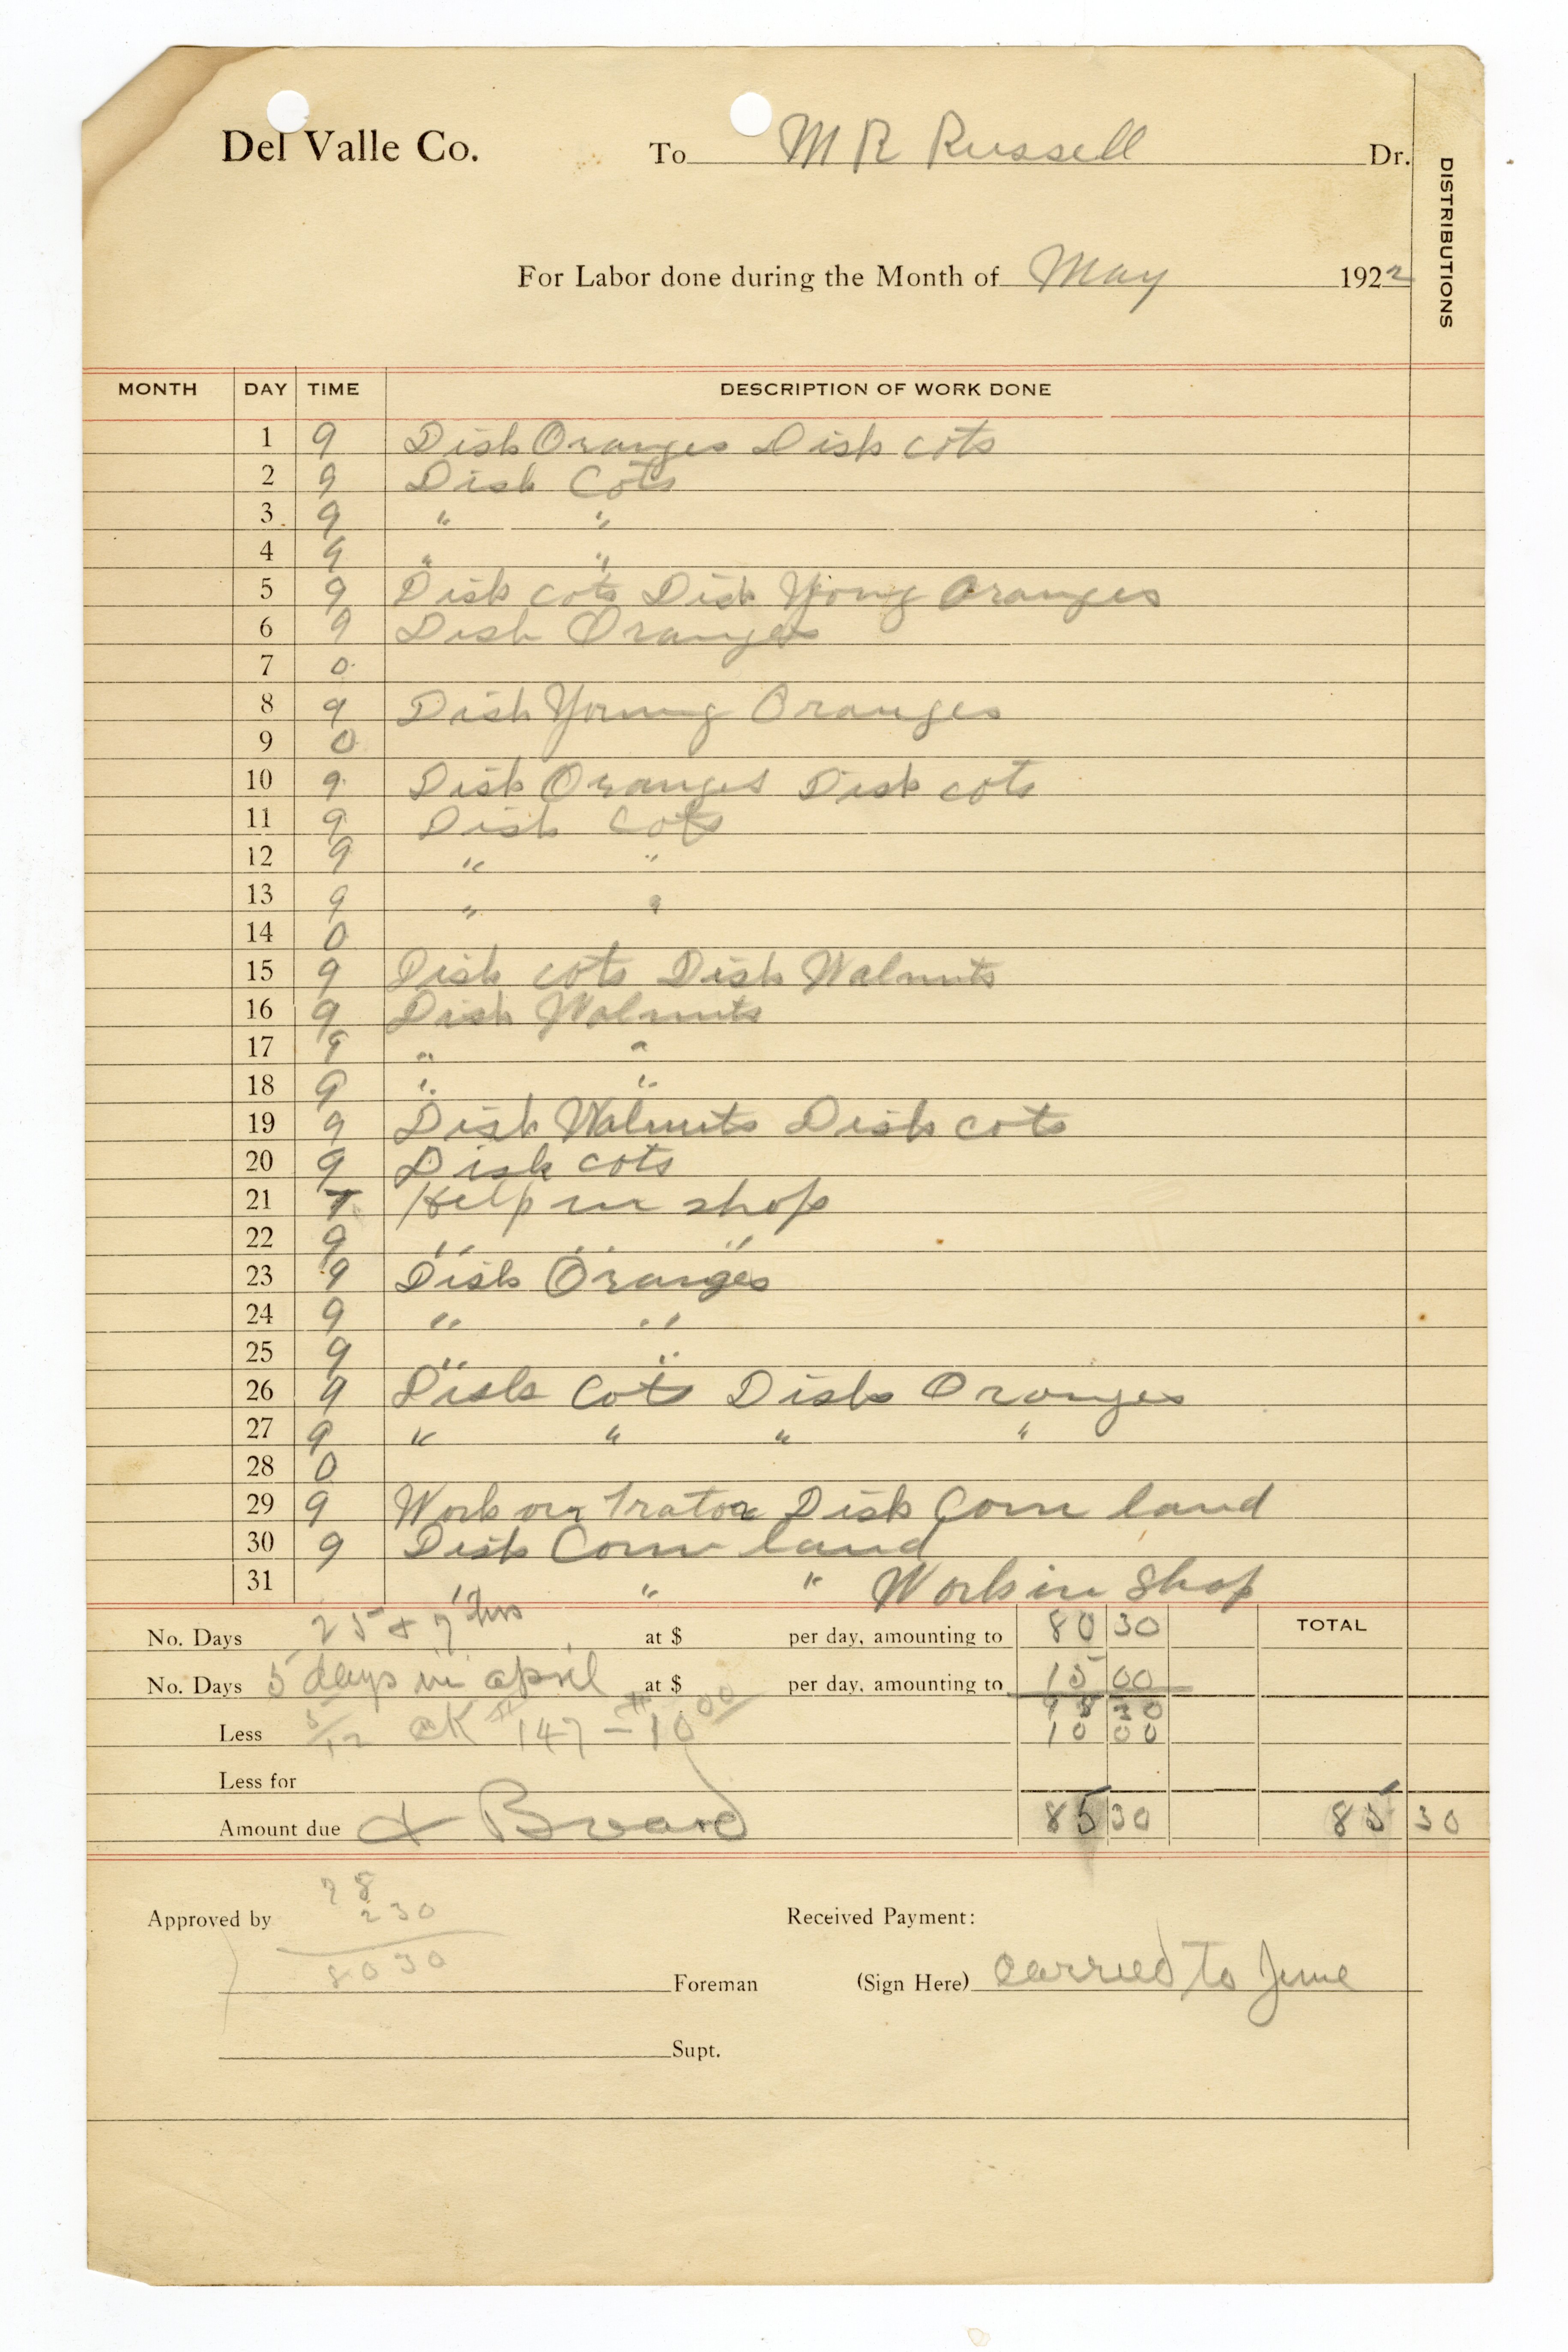 Del Valle Co. To M R Russell Dr.
DISTRIBUTIONS
For Labor done during the Month of May 1922
MONTH DAY TIME DESCRIPTION OF WORK DONE
1 9 Disk Oranges Disk cots
2 9 Disk Cots
3 9 " "
4 9 " "
5 9 Disk cots Disk Yong Oranges
6 9 Disk Oranges
7 0
8 9 Disk Young Oranges
9 0
10 9 Disk Oranges Disk cots
11 9 Disk Cots
12 9 " "
13 9 " "
14 0
15 9 Disk cots Disk Walnuts
16 9 Disk Walnuts
17 9 " "
18 9 " "
19 9 Disk Walnuts Disk cots
20 9 Disk cots
21 7 Help in shop
22 9 " " "
23 9 Disk Oranges
24 9 " "
25 9 " "
26 9 Disk Cots Disk Oranges
27 9 " " " "
28 0
29 9 Work on Trator Disk Corn land
30 9 Disk Corn land
31 " " " Work in Shop
No. Days 25 & 7 hrs at $ per day, amounting to 80 30 TOTAL
No. Days 5 days in april at $ per day, amounting to 15 00
95 30
Less 5/12 cK # 147 - # 10 00 10 00
Less for
Amount due & Board 85 30 85 30
78
2 30
80 30
Approved by Received Payment:
Foreman (Sign Here) carried to June
Supt.